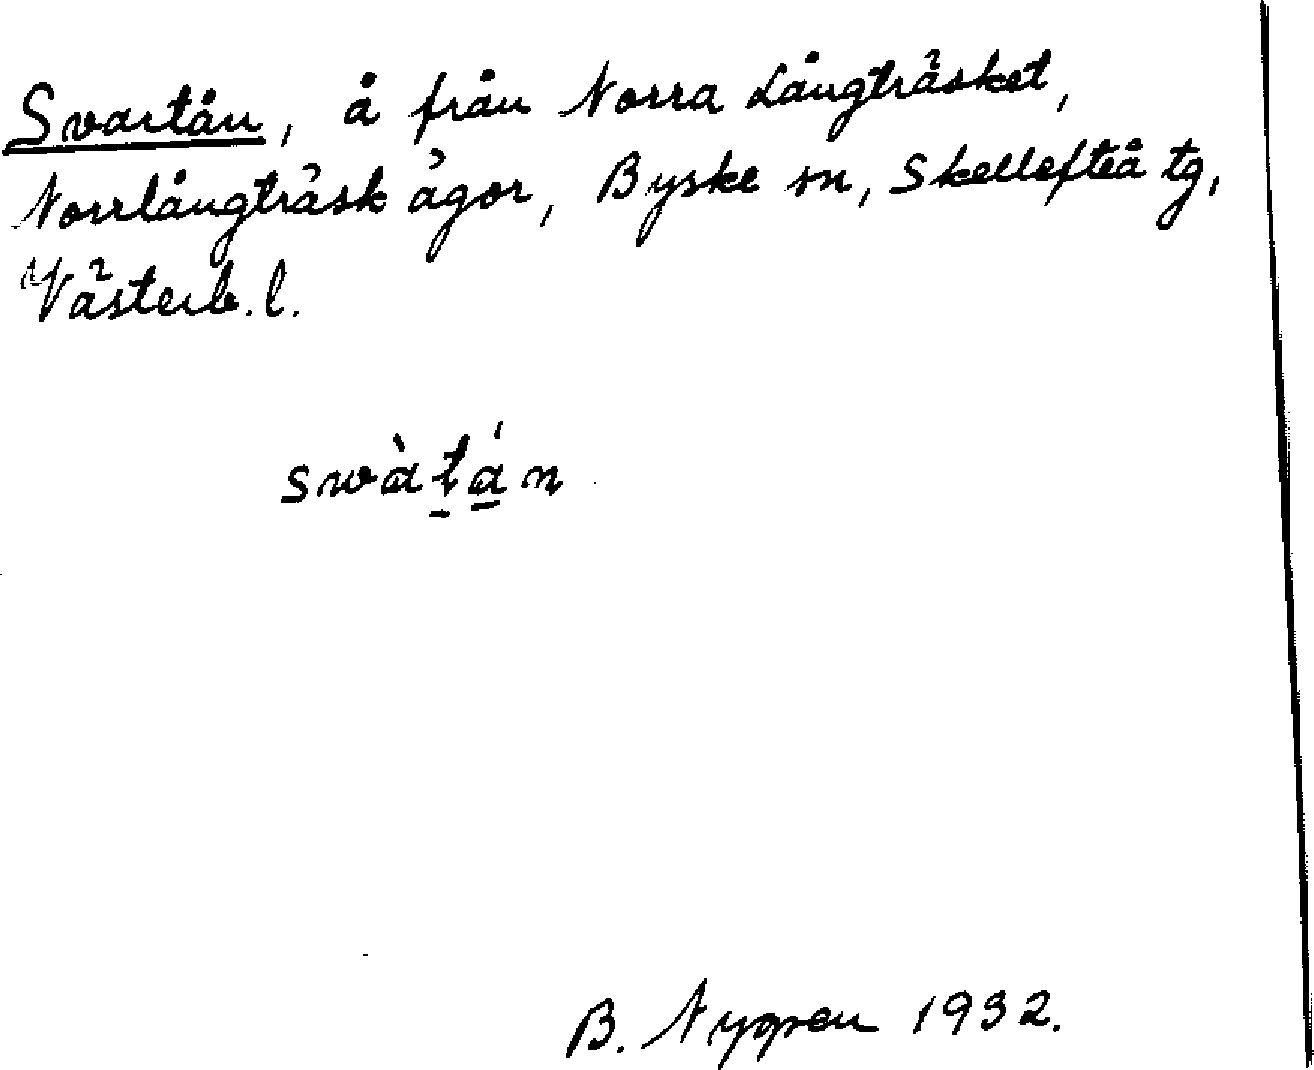 Svartån, å från Norra Långträsket,
Norrlångträsk ägor, Byske sn, Skellefteå tg,
Västerb. l.
swàt̠á̠n
B. Nygren 1932.